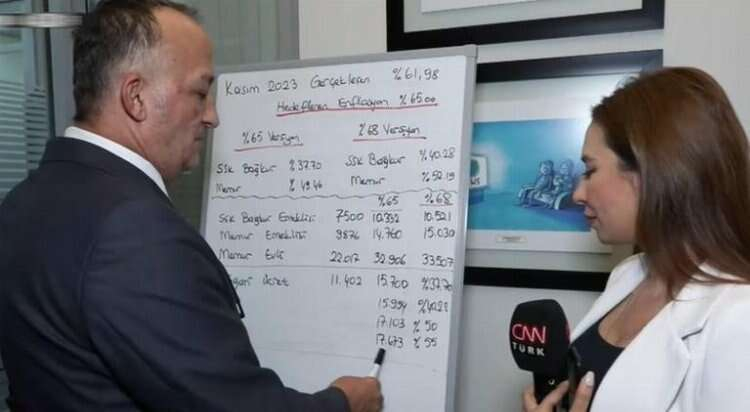 Kasım 2023 Gerçekleşen %61,98
Hedeflenen Enflasyon %65.00
%65 Versiyon %68 Versiyon
SSK Bağkur %37.70 SSK Bağkur %40.28
Memur %49.46 Memur %52.19
%65 %68
SSK Bağkur Emeklisi 7500 10.332 10.521
Memur Emeklisi 9876 14.760 15.030
Memur Evli 22.017 32.906 33507
gari ücret 11.402 15.700 %37.70
15.994 %40.28
17.103 %50
17.673 %55
CNN
TÜRK